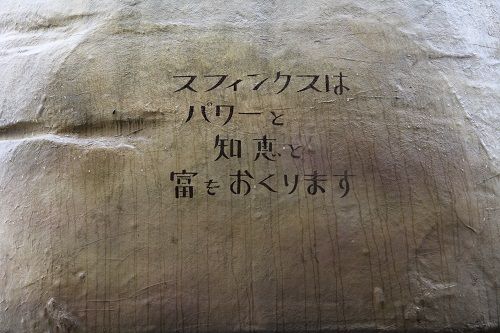 スフィンクスは
パワーと
知恵と
富をおくります